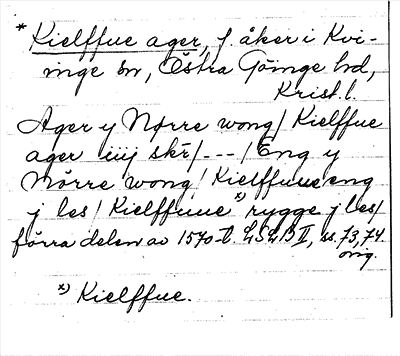 * Kielffue ager, f. åker i Kvi-
inge sn, Östra Göinge hd,
Krist. l.
Ager y Nørre wong / Kielffue
ager iiij skr̄ / --- / Eng y
Nörre wong / Kielffuue eng
j les / Kielffuue x) rygge j les /
förra delen av 1570-t. LSLB II, ss. 73, 74
orig.
x) Kielffue.